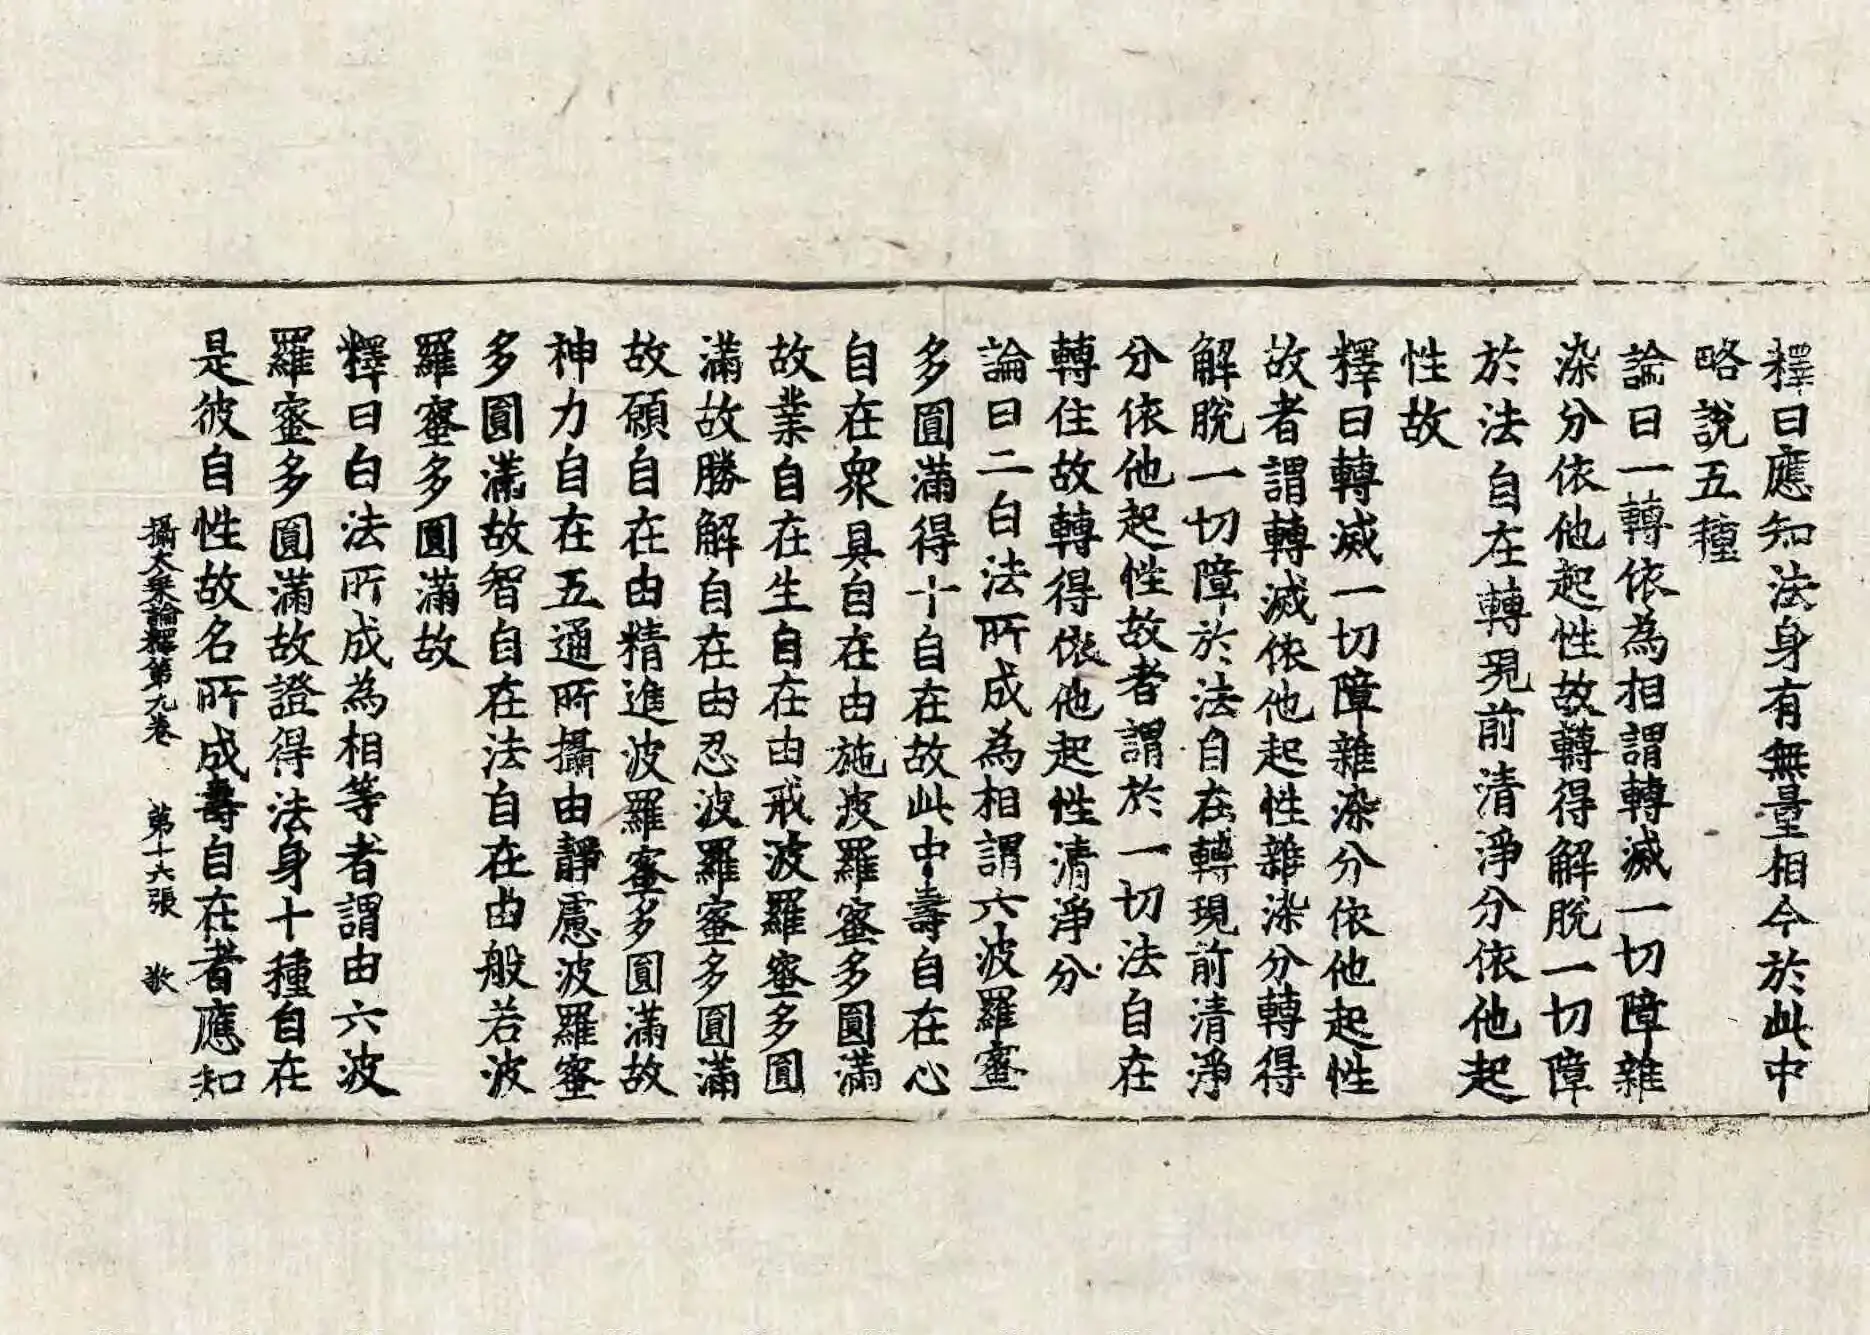 釋曰應知法身有無量相今於此中
略說五種
論曰一轉依為相謂轉滅一切障雜
染分依他起性故轉得解脫一切障
於法自在轉現前清淨分依他起
性故
釋曰轉滅一切障雜染分依他起性
故者謂轉滅依他起性雜染分轉得
解脫一切障於法自在轉現前清淨
分依他起性故者謂於一切法自在
轉住故轉得依他起性清淨分
論曰二白法所成為相謂六波羅蜜
多圓滿得十自在故此中壽自在心
自在眾具自在由施波羅蜜多圓滿
故業自在生自在由戒波羅蜜多圓
滿故勝解自在由忍波羅蜜多圓滿
故願自在由精進波羅蜜多圓滿故
神力自在五通所攝由靜慮波羅蜜
多圓滿故智自在法自在由般若波
羅蜜多圓滿故
釋曰白法所成為相等者謂由六波
羅蜜多圓滿故證得法身十種自在
是彼自性故名所成壽自在者應知
攝大乘論釋第九卷 第十六張 敬